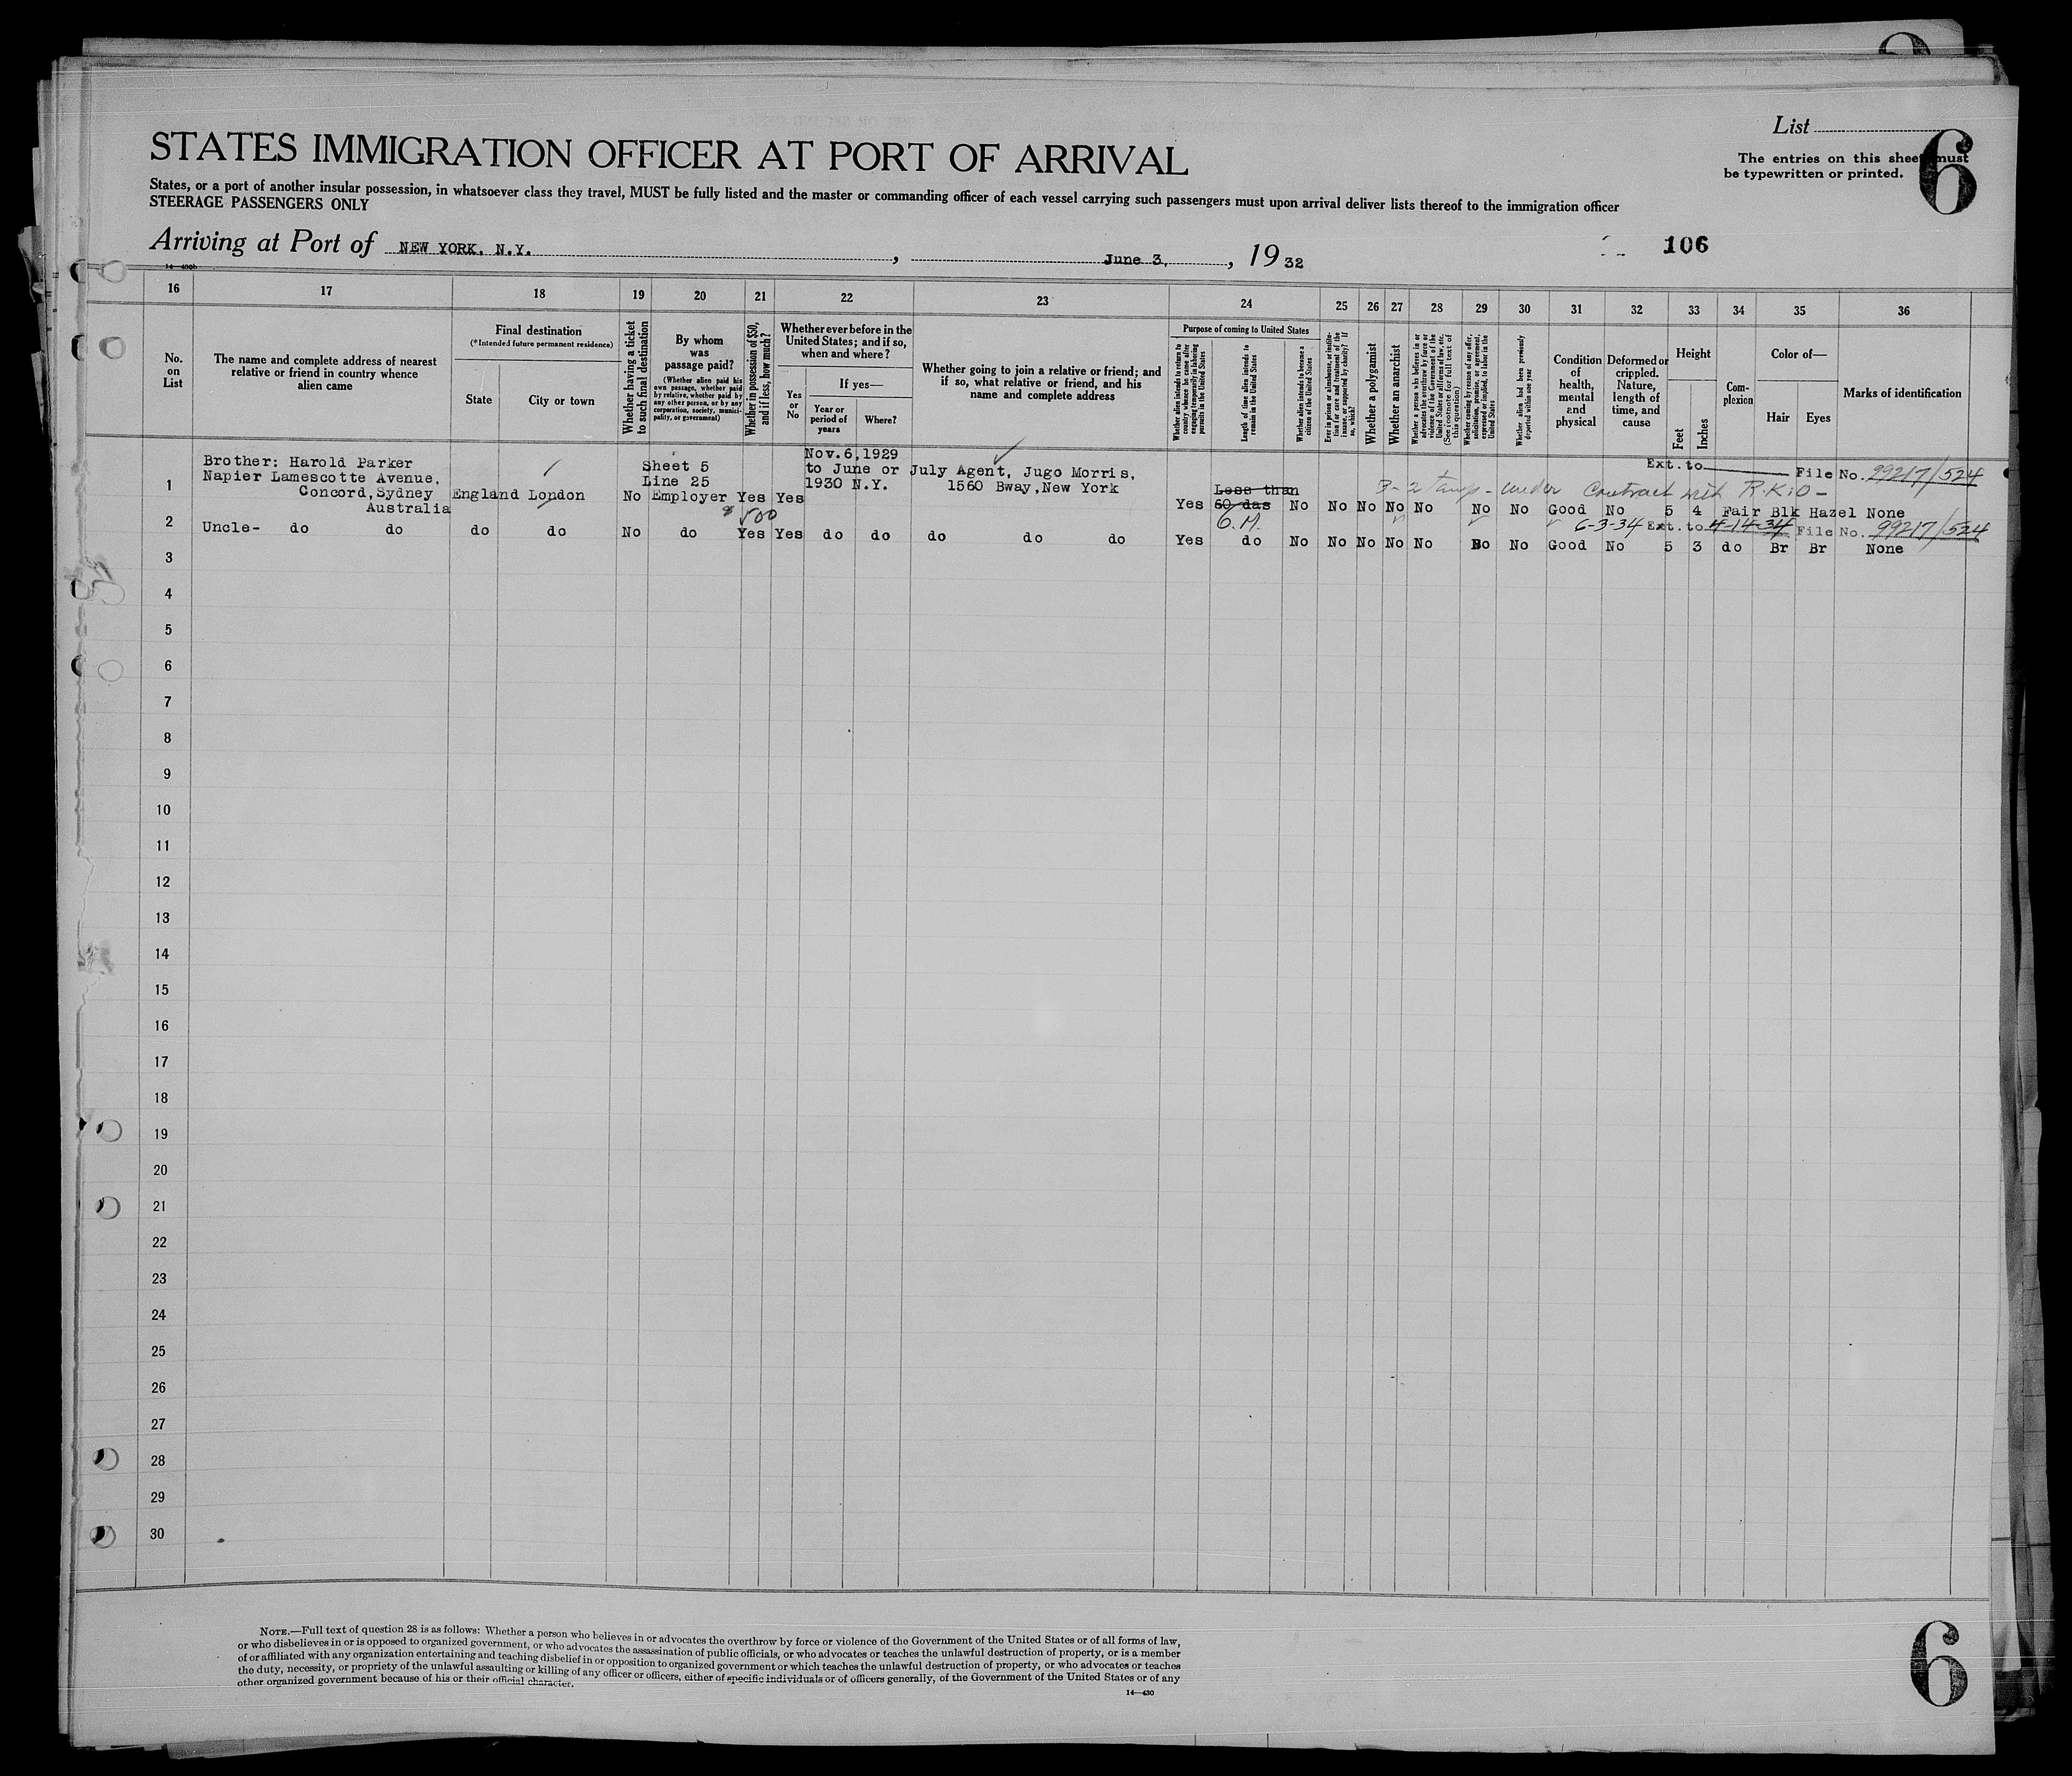 List
STATES IMMIGRATION OFFICER AT PORT OF ARRIVAL
The entries on this sheet must
be typewritten or printed.
6
States, or a port of another insular possession, in whatsoever class they travel, MUST be fully listed and the master or commanding officer of each vessel carrying such passengers must upon arrival deliver lists thereof to the immigration officer
STEERAGE PASSENGERS ONLY
Arriving at Port of NEW YORK. N.Y. , June 3, , 19 32
106
16 17 18 19 20 21 22 23 24 25 26 27 28 29 30 31 32 33 34 35 36
No. on List
The name and complete address of nearest relative or friend in country whence alien came
Final destination
(*Intended future permanent residence)
State
City or town
Whether having a ticket to such final destination
By whom was passage paid?
(Whether alien paid his own passage, whether paid by relative, whether paid by any other person, or by any corporation, society, municipality, or government)
Whether in possession of $50, and if less, how much?
Whether ever before in the United States; and if so, when and where?
Yes or No
If yes—
Year or period of years
Where?
Whether going to join a relative or friend; and if so, what relative or friend, and his name and complete address
Purpose of coming to United States
Whether alien intends to return to country whence he came after engaging temporarily in laboring pursuits in the United States
Length of time alien intends to remain in the United States
Whether alien intends to become a citizen of the United States
Ever in prison or almshouse, or institution for care and treatment of the insane, or supported by charity? If so, which?
Whether a polygamist
Whether an anarchist
Whether a person who believes in or advocates the overthrow by force or violence of the Government of the United States or all forms of law, etc. (See footnote for full text of this question)
Whether coming by reason of any offer, solicitation, promise, or agreement, expressed or implied, to labor in the United States
Whether alien had been previously deported within one year
Condition of health, mental and physical
Deformed or crippled. Nature, length of time, and cause
Height
Feet
Inches
Complexion
Color of—
Hair
Eyes
Marks of identification
Brother: Harold Parker
Napier Lamescotte Avenue,
Concord, Sydney
Australia
England London
Sheet 5
Line 25
No Employer Yes Yes
$500
Nov. 6, 1929
to June or July
1930 N.Y.
Agent, Jugo Morris,
1560 Bway, New York
Ext. to File No. 99217/524
under Contract with R.K.O -
Less than
Yes 60 das No No No No No No No Good No 5 4 Fair Blk Hazel None
6. M.
6-3-34 Ext. to 4-14-34 File No. 99217/524
Uncle- do do do do No do Yes Yes do do do do do Yes do No No No No No No No Good No 5 3 do Br Br None
1
2
3
4
5
6
7
8
9
10
11
12
13
14
15
16
17
18
19
20
21
22
23
24
25
26
27
28
29
30
NOTE.—Full text of question 28 is as follows: Whether a person who believes in or advocates the overthrow by force or violence of the Government of the United States or of all forms of law,
or who disbelieves in or is opposed to organized government, or who advocates the assassination of public officials, or who advocates or teaches the unlawful destruction of property, or is a member
of or affiliated with any organization entertaining and teaching disbelief in or opposition to organized government or which teaches the unlawful destruction of property, or who advocates or teaches
the duty, necessity, or propriety of the unlawful assaulting or killing of any officer or officers, either of specific individuals or of officers generally, of the Government of the United States or of any
other organized government because of his or their official character.
14—430
6